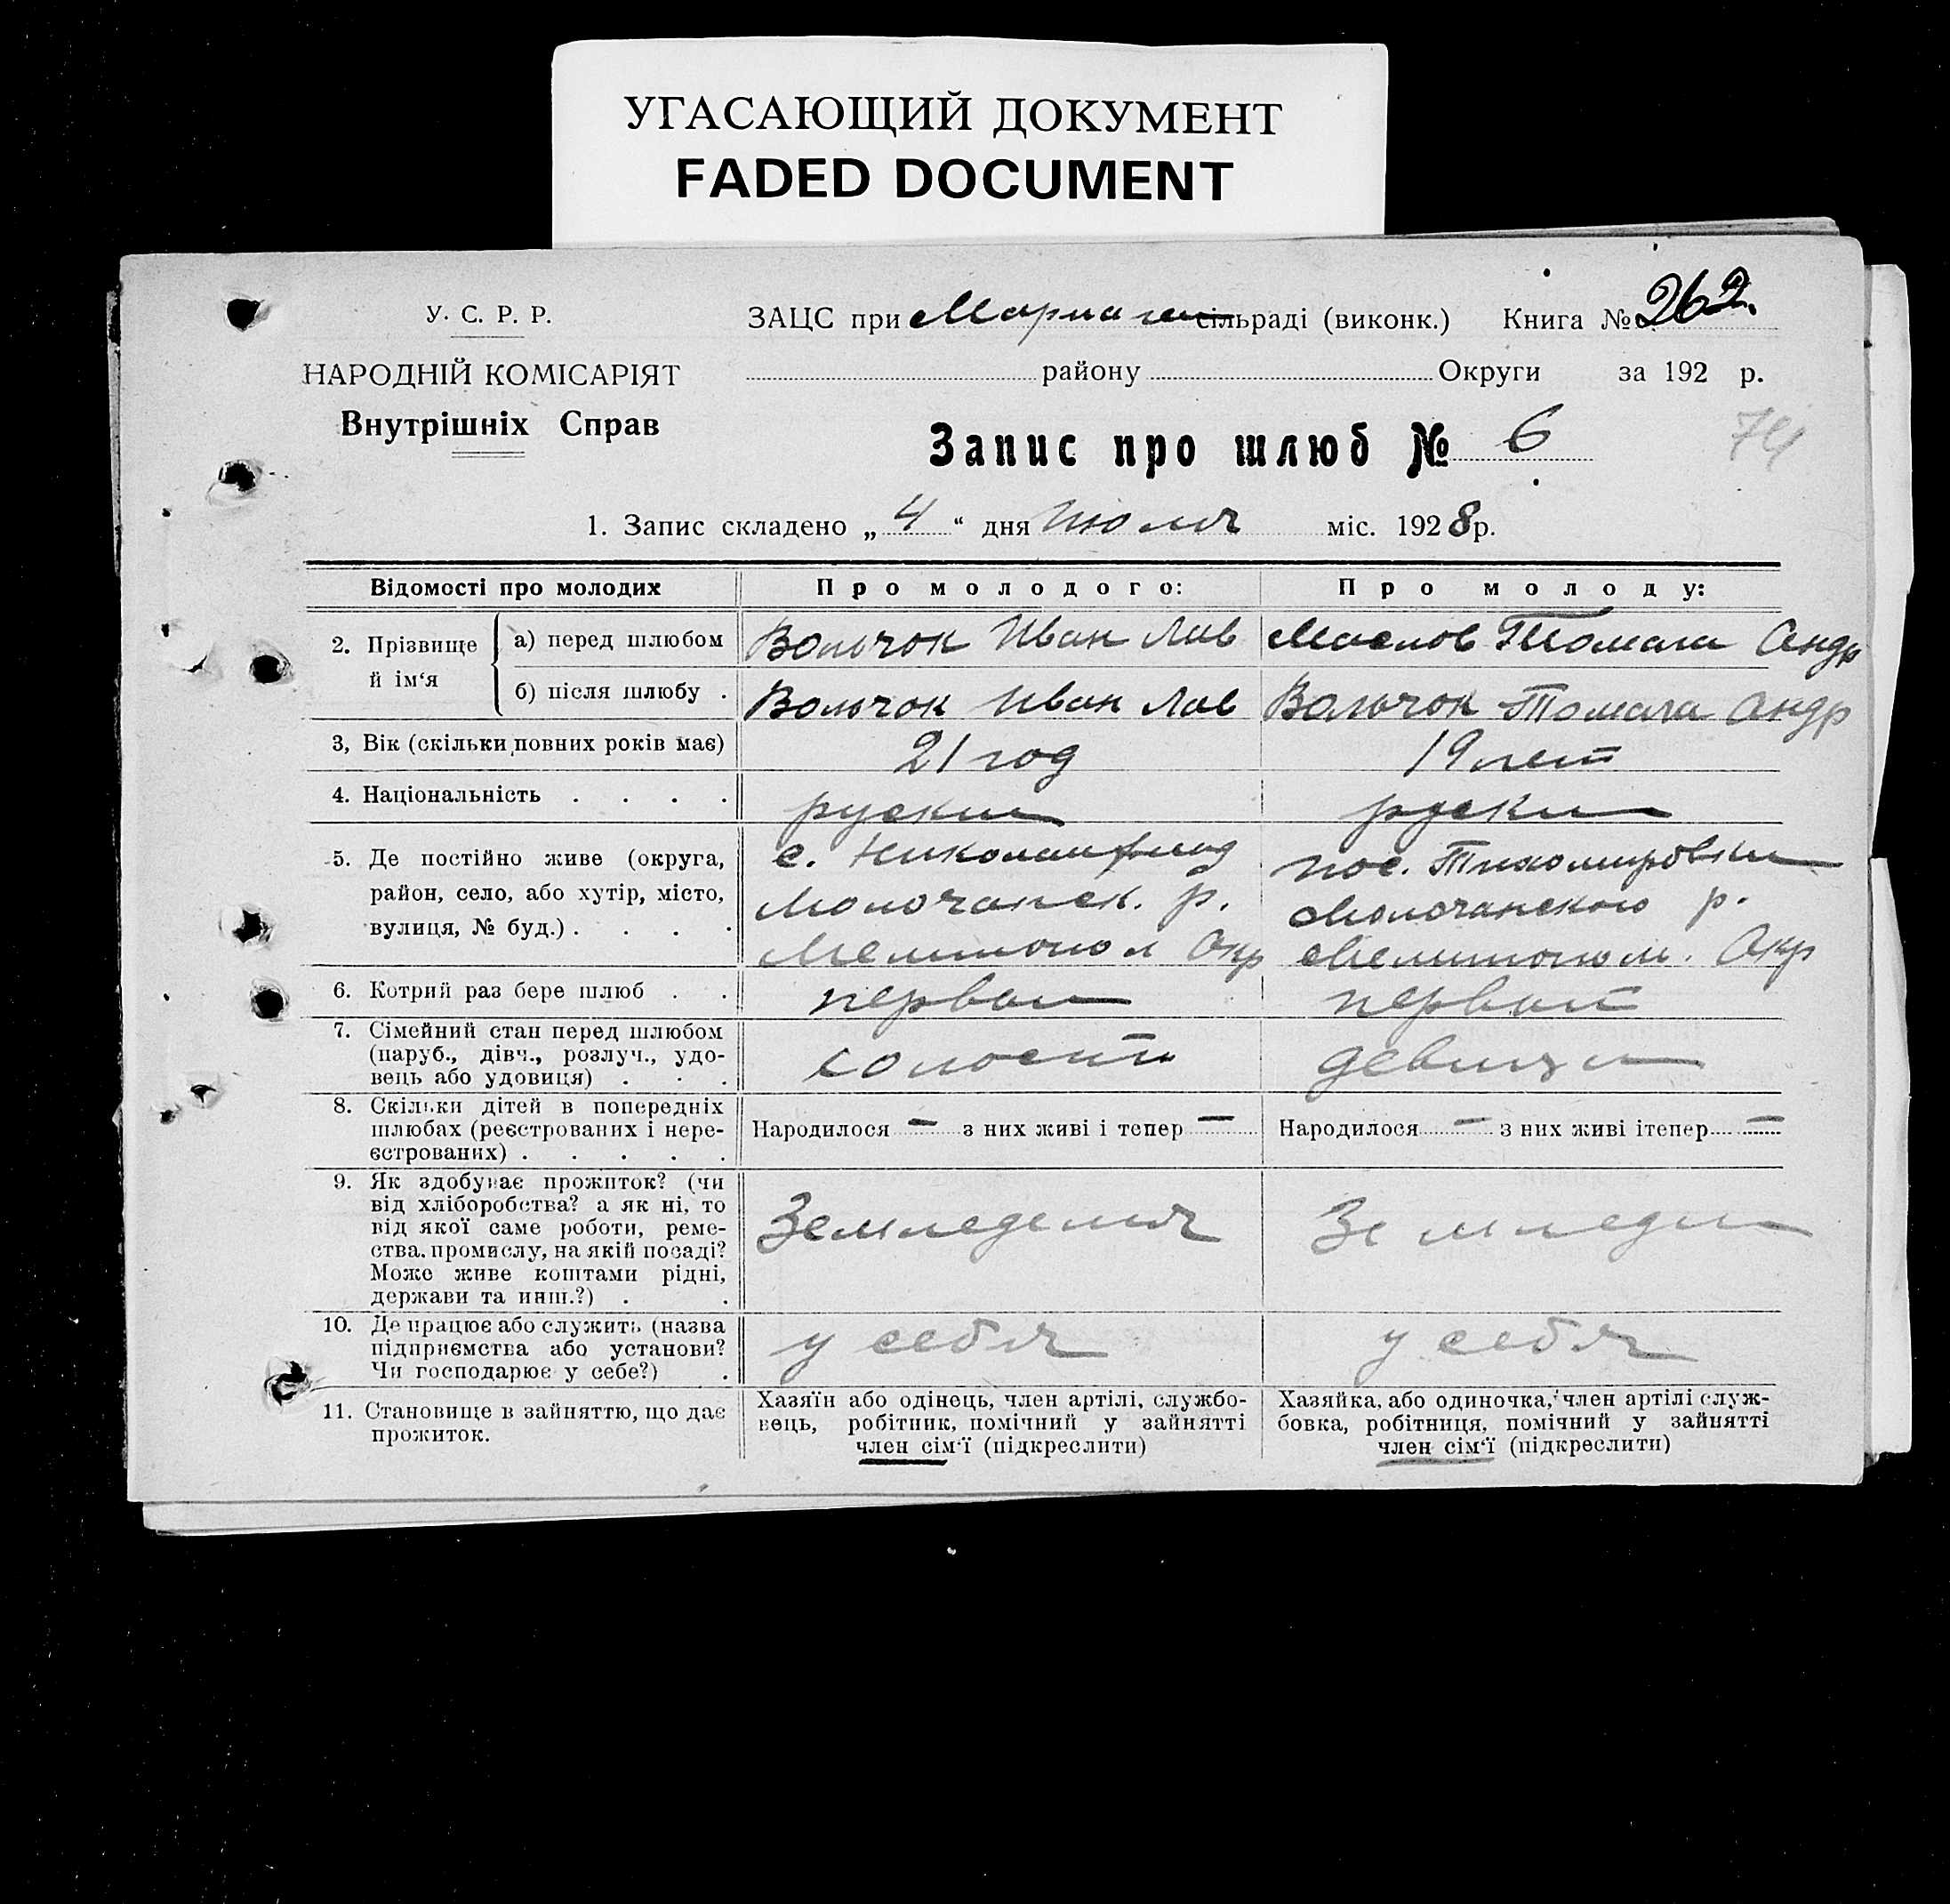 УГАСАЮЩИЙ ДОКУМЕНТ
FADED DOCUMENT
У. С. Р. Р.
НАРОДНІЙ КОМІСАРІЯТ
Внутрішніх Справ
ЗАЦС при сільраді (виконк.) Книга № 262
району Округи за 192 р.
Запис про шлюб № 6
74
1. Запис складено „ 4 “ дня Июля міс. 1928 р.
Відомості про молодих
Про молодого:
Про молоду:
2. Прізвище й ім‘я
а) перед шлюбом
Вольчок Иван Лав
Маслов Томара Андр
б) після шлюбу .
Вольчок Иван Лав
Вольчок Томара Андр
3, Вік (скільки повних років має)
21 год
19 лет
4. Національність . . . .
руски
руски
5. Де постійно живе (округа,
район, село, або хутір, місто,
вулиця, № буд.) . . . .
с. Николай
Молочанск. р.
Мелитопол Окр
пос. Тихомировки
Молочанского р.
Мелитопол. Окр
6. Котрий раз бере шлюб . .
первой
первой
7. Сімейний стан перед шлюбом
(паруб., дівч., розлуч., удо-
вець або удовиця) . . .
солостй
девица
8. Скільки дітей в попередніх
шлюбах (реєстрованих і нере-
єстрованих) . . . . .
Народилося — з них живі і тепер —
Народилося — з них живі ітепер —
9. Як здобуває прожиток? (чи
від хліборобства? а як ні, то
від якої саме роботи, реме-
ства, промислу, на якій посаді?
Може живе коштами рідні,
держави та инш.?) . .
Земледелия
Земледел
10. Де працює або служить (назва
підприємства або установи?
Чи господарює у себе?) .
у себя
у себя
11. Становище в зайняттю, що дає
прожиток.
Хазяїн або одінець, член артілі, службо-
вець, робітник, помічний у зайнятті
член сім‘ї (підкреслити)
Хазяйка, або одиночка, член артілі служ-
бовка, робітниця, помічний у зайнятті
член сім‘ї (підкреслити)